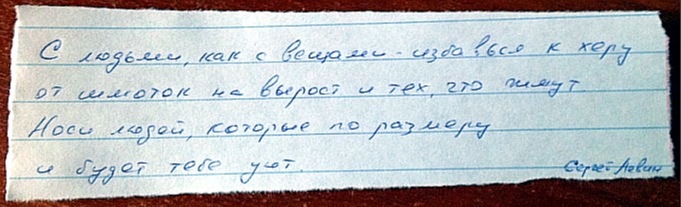 С людьми, как с вещами - избавься к херу
от шмоток на вырост и тех, что жмут
Носи людей, которые по размеру
и будет тебе уют.
Сергей